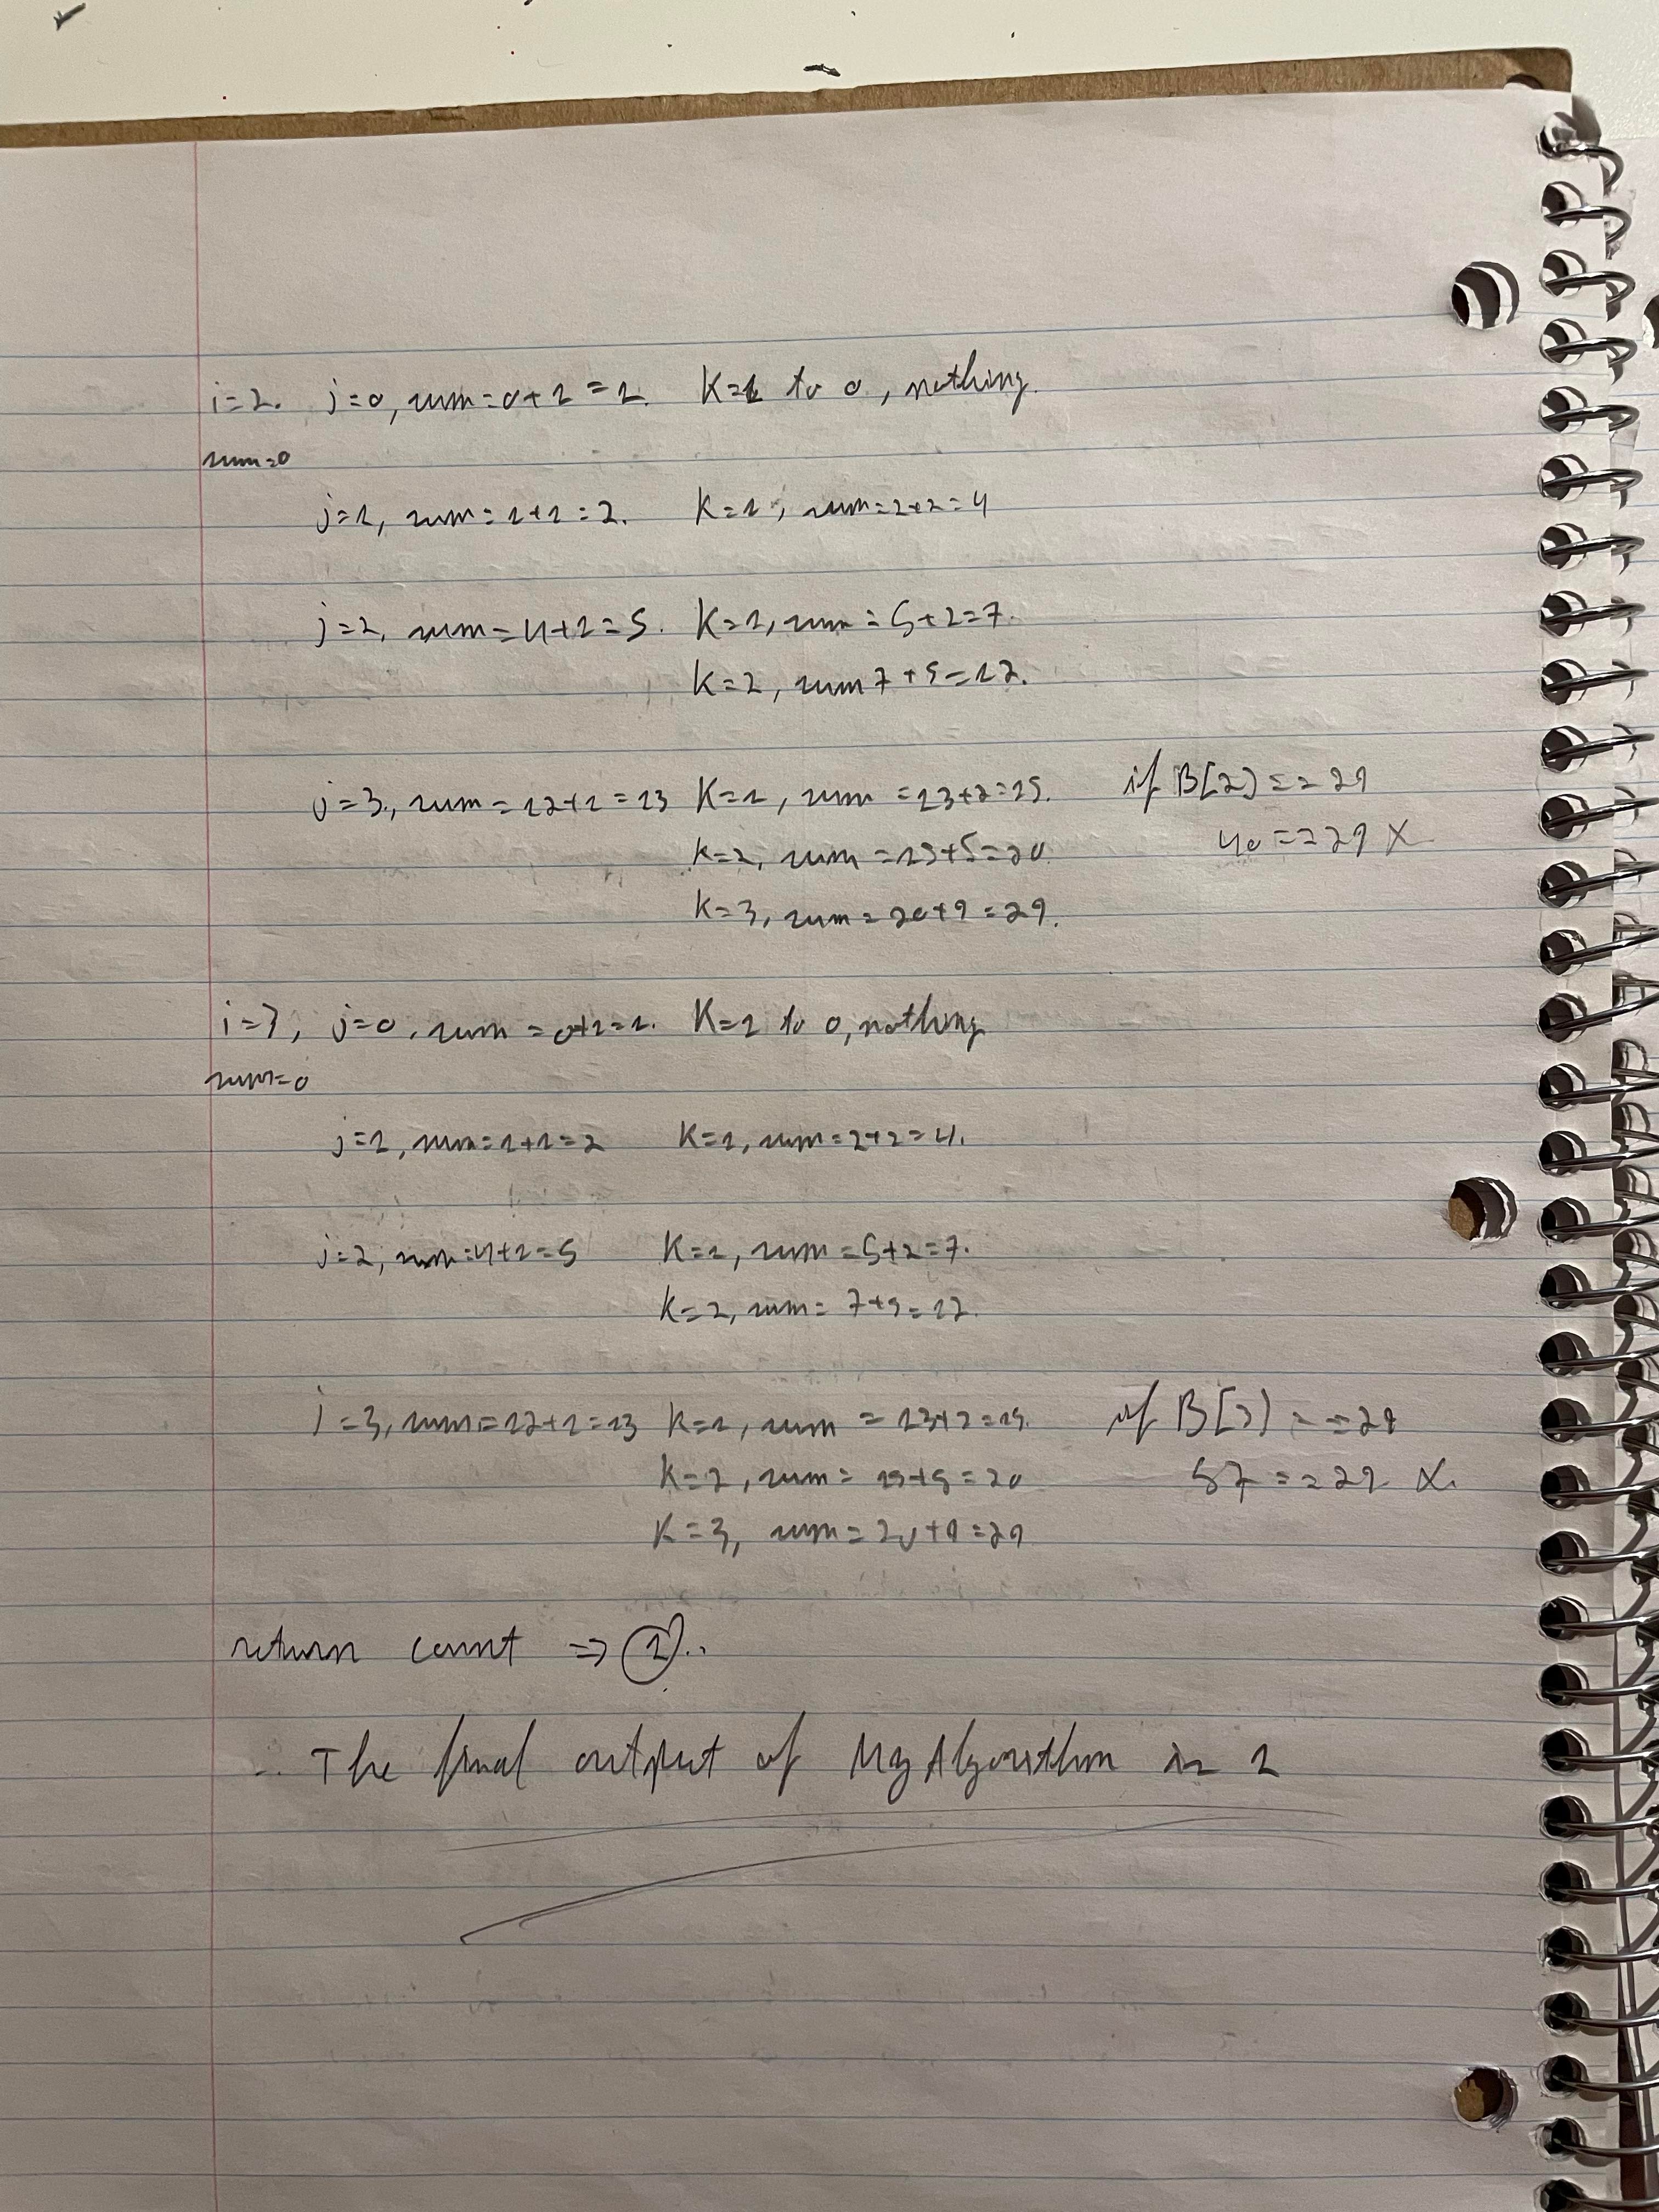 i=2. j=0, sum=0+1=1. K=1 to 0, nothing.
sum=0
j=1, sum=1+1=2. K=1, sum=2+2=4
j=2, sum=4+1=5. K=1, sum=5+2=7.
K=2, sum 7+5=12.
j=3, sum=12+1=13 K=1, sum=13+2=15. if B[2]==29
K=2, sum=15+5=20 40==29 X
K=3, sum=20+9=29.
i=3, j=0, sum=0+1=1. K=1 to 0, nothing
sum=0
j=1, sum=1+1=2 K=1, sum=2+2=4.
j=2, sum=4+1=5 K=1, sum=5+2=7.
K=2, sum=7+5=12.
j=3, sum=12+1=13 K=1, sum=13+2=15. if B[3]==29
K=2, sum=15+5=20 57==29 X.
K=3, sum=20+9=29
return count => 1
The final output of MyAlgorithm is 1